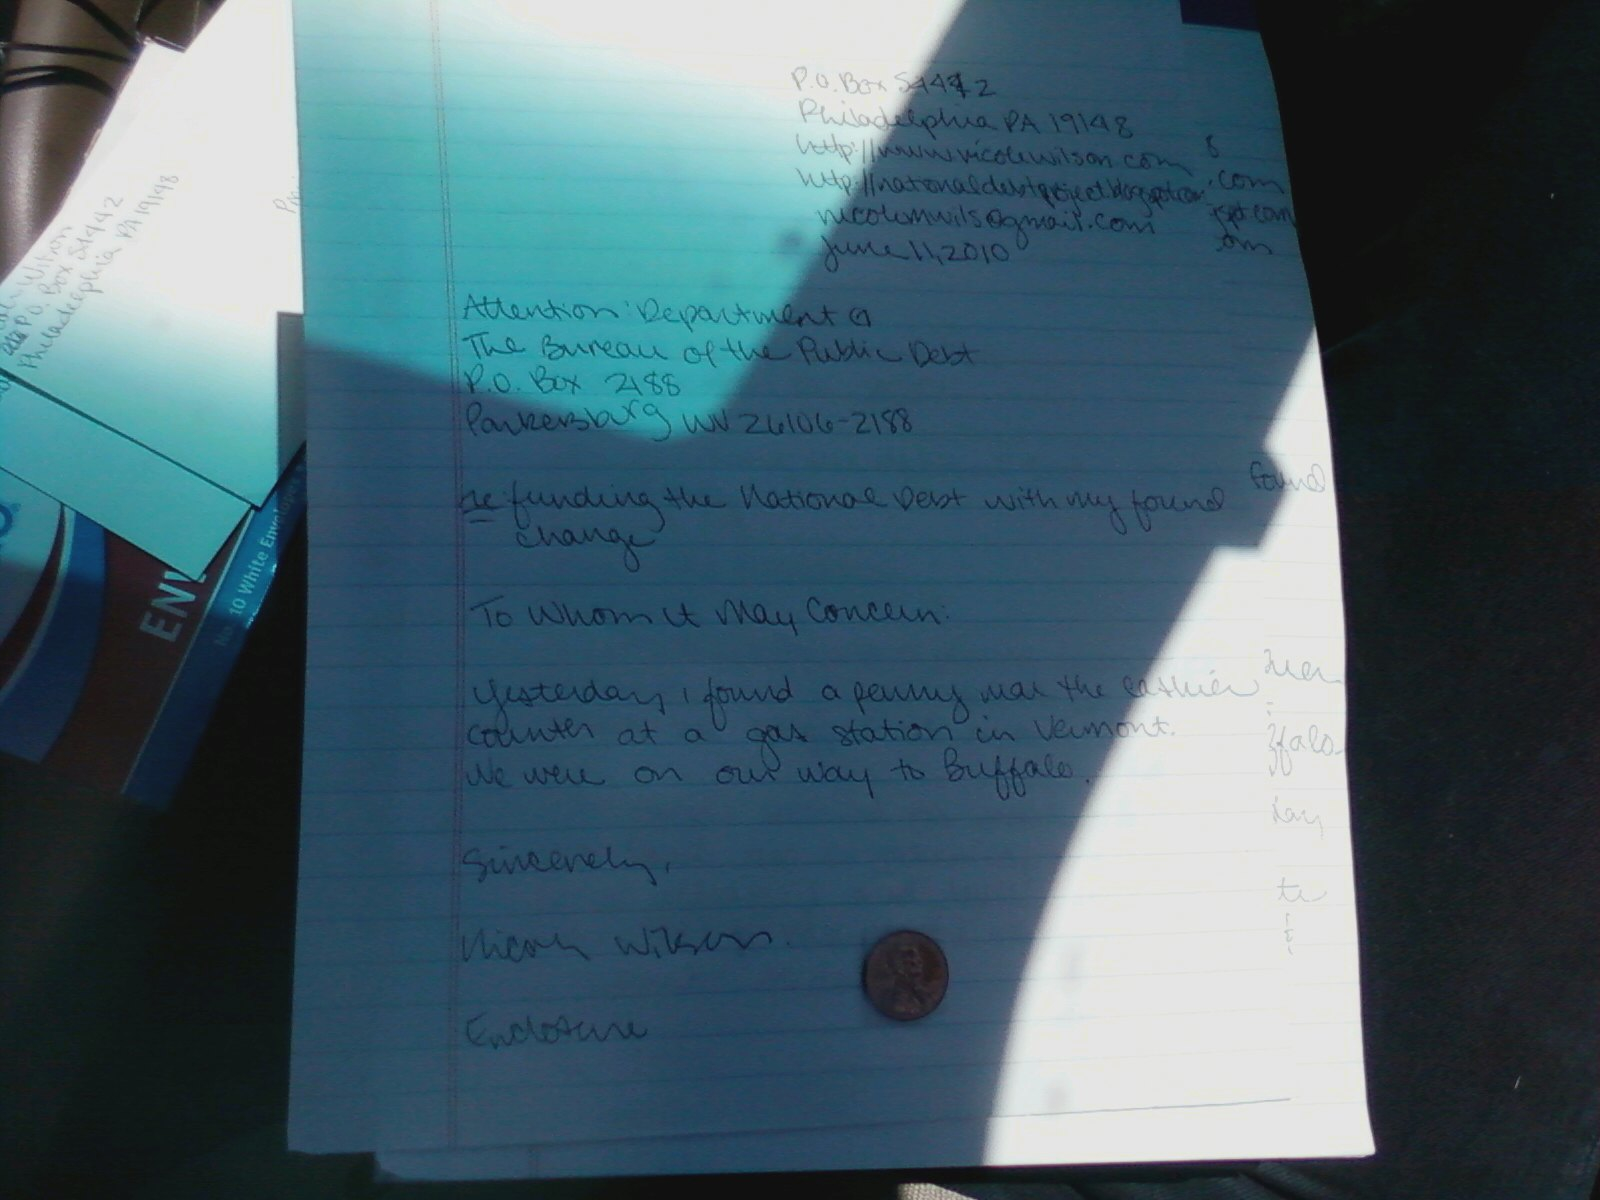 P.O. Box 54442
Philadelphia PA 19148
http://www.nicolewilson.com
http://nationaldebtproject.blogspot.com
nicolemwils@gmail.com
June 11, 2010
Attention: Department G
The Bureau of the Public Debt
P.O. Box 2188
Parkersburg WV 26106-2188
re funding the National Debt with my found
change
To Whom it May Concern:
Yesterday, i found a penny near the cashier
counter at a gas station in Vermont.
We were on our way to Buffalo.
Sincerely,
Nicole Wilson.
Enclosure
found
.com
Wilson
P.O. Box 54442
Philadelphia PA 19148
ENV
No. 10 White Envelopes